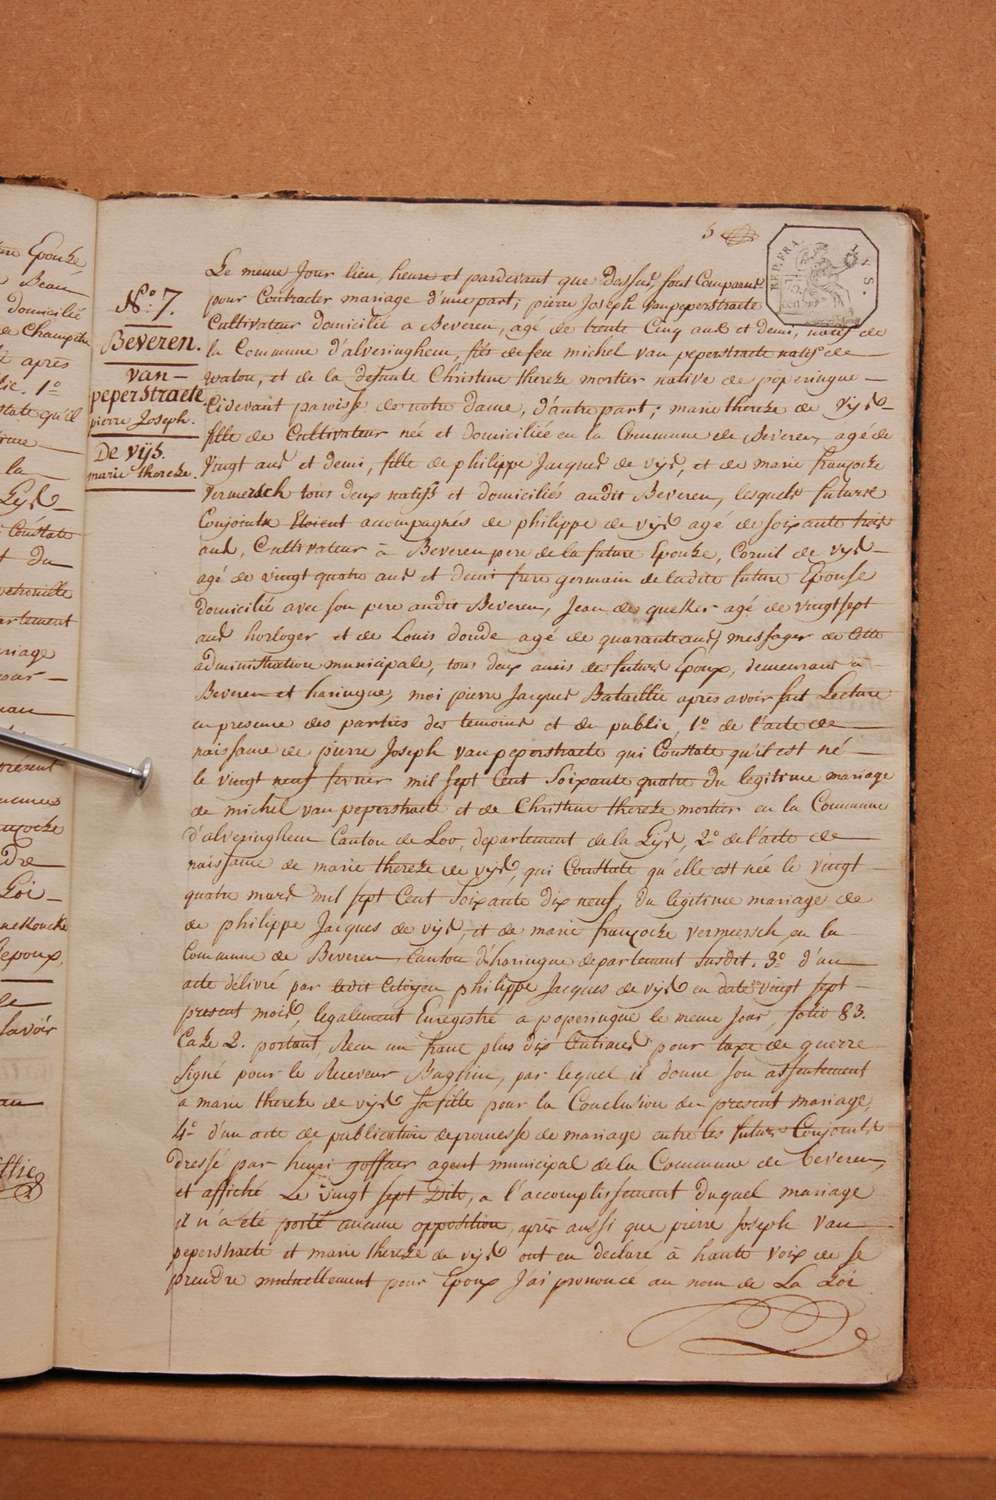 5
REP. FRA.
LYS.
N.º 7.
Beveren.
van-
peperstraete
pierre Joseph.
De vijs.
marie thereze.
Le meme Jour lieu, heure et pardevant que Dessus, sont Comparus
pour Contracter mariage d'une part, pierre Joseph van peperstraete
Cultivateur domicilié a Beveren, agé de trente Cinq ans et demi, natif de
la Commune d'alveringhem, fils de feu michel van peperstraete natif de
watou, et de la defunte Christine thereze mortier native de poperingue
Cidevant paroisse de notre dame, d'autre part; marie thereze de vijs
fille de Cultivateur née et domiciliée en la Commune de Beveren, agé de
vingt ans et demi, fille de philippe Jacques de vijs, et de marie françoize
vermersch tous deux natifs et domiciliés audit Beveren, lesquels futurs
Conjoints Etoient acompagnés de philippe de vijs agé de soixante trois
ans, Cultivateur à Beveren pere de la future Epouze, Corneil de vijs
agé de vingt quatre ans et demi frere germain de ladite future Epouse
domicilié avec son pere audit Beveren, Jean de quekker agé de vingt sept
ans horloger et de Louis donde agé de quarante ans, messager de Cette
administration municipale, tous deux amis des futurs Epoux, demeurans a
Beveren et haringue, moi pierre Jacques Bataillie après avoir fait Lecture
en presence des parties des temoins et de public, 1º de l'acte de
naissance de pierre Joseph van peperstraete qui Constate qu'il est né
le vingt neuf fevrier mil sept Cent Soixante quatre du legitime mariage
de michel van peperstraete et de Christine thereze mortier en la Commune
d'alveringhem Canton de Loo, departement de la Lys, 2º de l'acte de
naissance de marie thereze de vijs, qui Constate qu'elle est née le vingt
quatre mars mil sept Cent Soixante dix neuf, du legitime mariage de
de philippe Jacques de vijs, et de marie françoize vermersch en la
Commune de Beveren Canton d'haringue departement susdit. 3º d'un
acte délivré par ledit Citoyen philippe Jacques de vijs en date vingt sept
present mois, legalement Enregistré a poperingue le meme Jour, folio 83.
Caze 2. portant, Recu un franc plus dix Centimes pour taxe de guerre
Signé pour le Receveur Baghin, par lequel il donne son assentement
a marie thereze de vijs sa fille pour la Conclusion du present mariage,
4º d'un acte de publication de promesse de mariage entre les futurs Conjoints
dressé par henri goffaer agent municipal de la Commune de beveren,
et affiché Le vingt sept Dito, a l'accomplissement duquel mariage
il n'a été porté aucune opposition, après aussi que pierre Joseph van
peperstraete et marie thereze de vijs ont en declaré à haute voix de se
prendre mutuellement pour Epoux J'ai prononcé au nom de La Loi